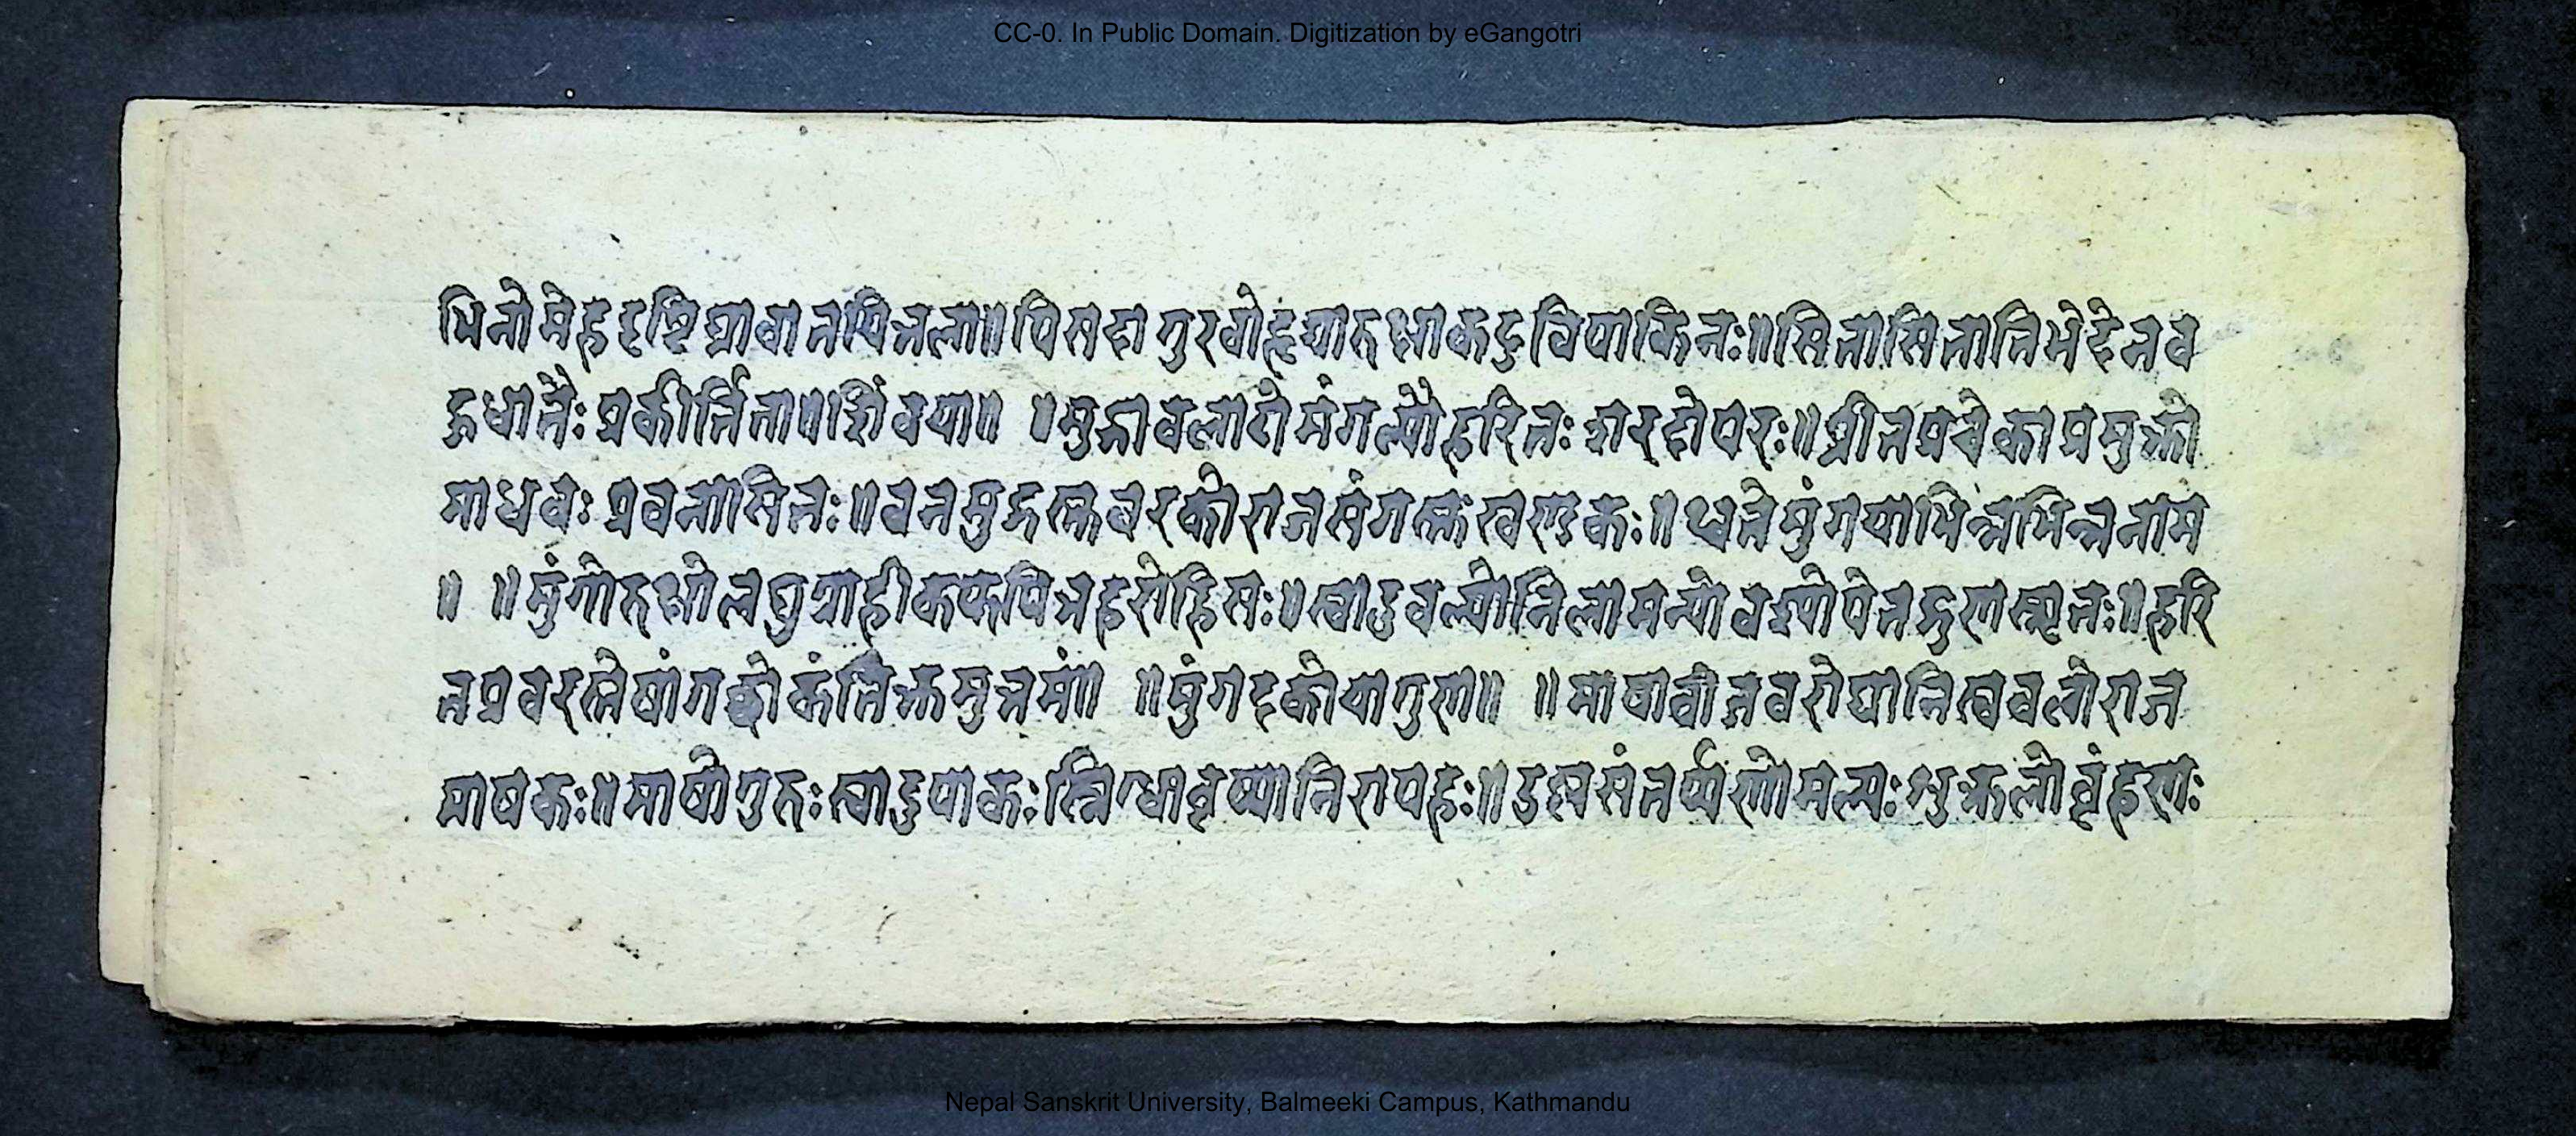 CC-0. In Public Domain. Digitization by eGangotri
भिनोमेहदृष्टिघ्रावानपित्तला॥पिसदागुरवोहृद्यारुक्षाकटुविपाकिनः॥सितासितातिभेदेनव
हुधान्तैः प्रकीर्त्तिता॥शिंवया॥ ॥मुद्गावलाटोमंगल्योहरितः शारदोपरः॥प्रीतप्रवेकाप्रमुक्तो
माधवः प्रवनासितः॥वनमुद्गस्तुवरकोराजसंगस्तुखण्डकः॥थ्वतेमुंगयाभिन्नभिन्ननाम
॥ ॥मुंगोरुक्षोलघुग्राहीकफपित्तहरोहिमः॥स्वादुवल्योनिलामन्योवश्योपेतद्गुणस्मृतः॥हरि
तप्रवरस्तेषांगछोकंतिक्तमुत्तमं॥ ॥मुंगदकोयागुण॥ ॥माषावीजवरोघानिस्ववलोराज
माषकः॥माषोगुरुः स्वादुपाकः स्निग्धोवृष्यानिरापहः॥उष्णसंतर्प्पणोमल्यः शुक्रलोवृंहणः
Nepal Sanskrit University, Balmeeki Campus, Kathmandu